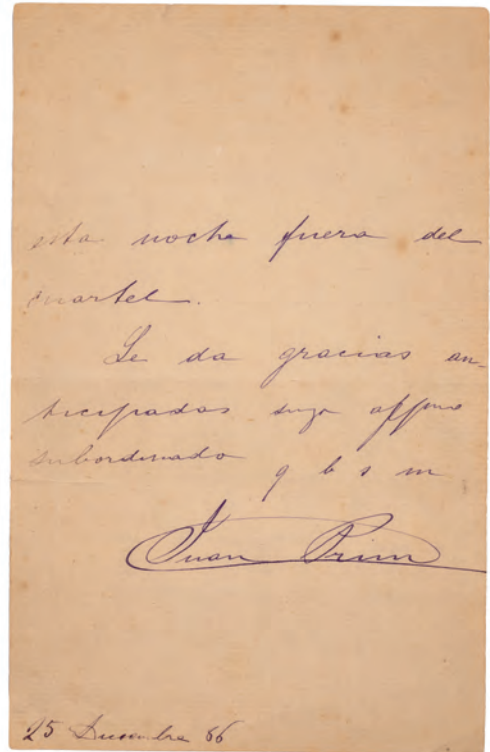 esta noche fuera del
cuartel.
Le da gracias an-
ticipadas suyo affmo
subordinado q b s m
Juan Prim
25 Diciembre 86